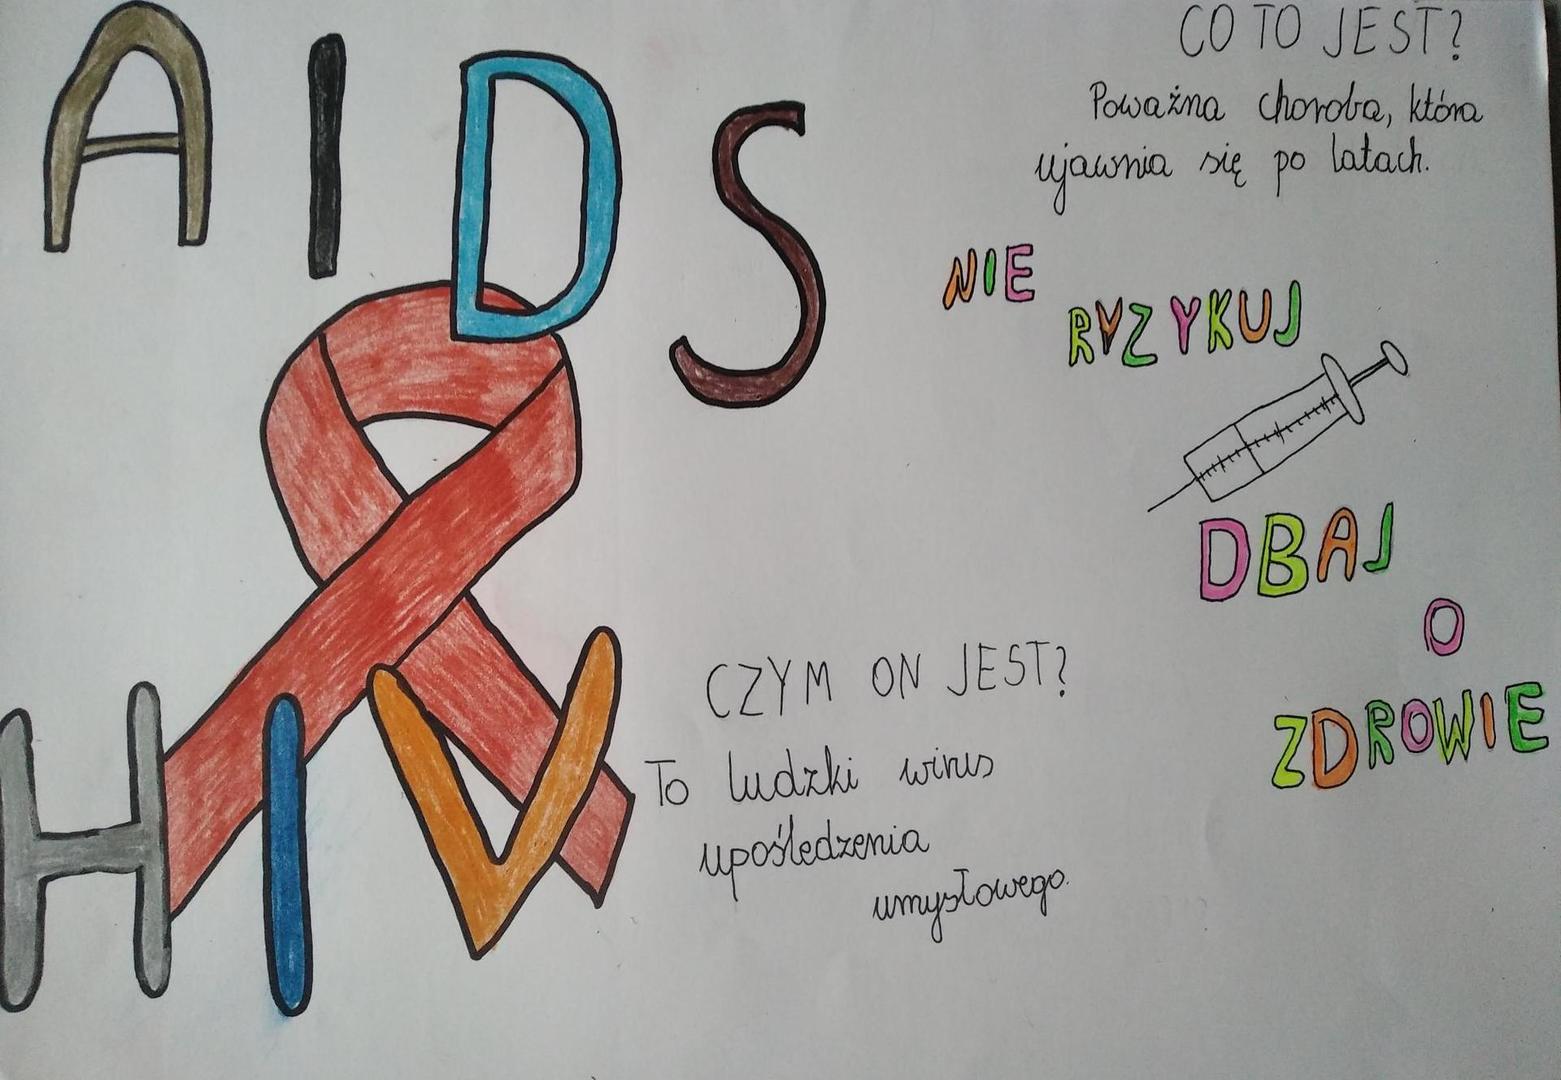 AIDS
CO TO JEST?
Poważna choroba, która
ujawnia się po latach.
NIE
RYZYKUJ
DBAJ
O
ZDROWIE
HIV
CZYM ON JEST?
To ludzki wirus
upośledzenia
umysłowego.